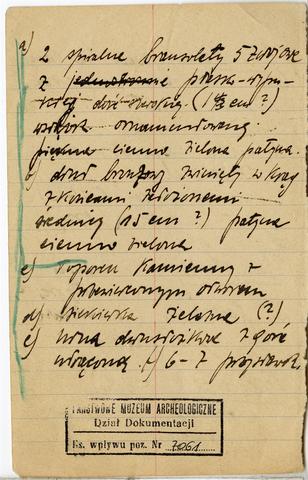 a) 2 spiralne bransolety 5 zwojowe
z jednostronnie płasko-wypu-
kłej dość szerokiej (1 1/2 cm ?)
wstążk ornamentowaną
piękna ciemno zielona patyna.
b) drut bronzowy zwinięty w krąg
z końcami
średnicy (15 cm ?) patyna
ciemno zielona
c) toporek kamienny z
przewierconym otworem
d) siekierka żelazna (?)
e) urna dwu z gorą
(?) 6-7 przystawek
PAŃSTWOWE MUZEUM ARCHEOLOGICZNE
Dział Dokumentacji
Ks. wpływu poz. Nr 7061